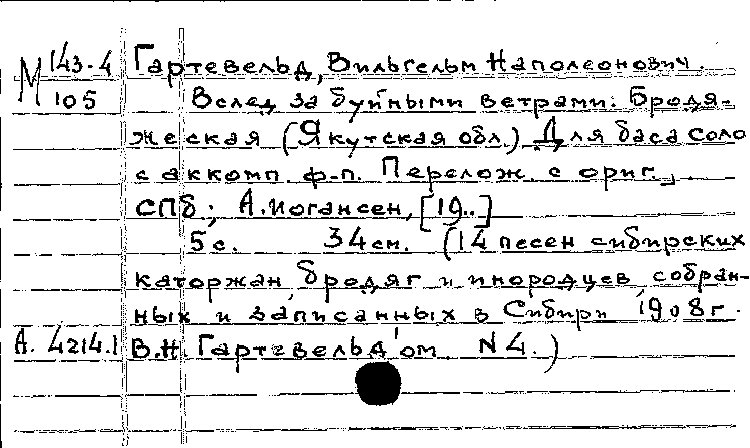 М 143-4 Гартевельд, Вильгельм Наполеонович.
105 Вслед за буйными ветрами: Бродя-
жеская (Якутская обл.) Для баса соло
с аккомп. ф-п. Перелож. с ориг.
СПб; А. Иогансен, [19..]
5 с. 34 см. (14 песен сибирских
каторжан, бродяг и инородцев, собран-
ных и записанных в Сибири 1908 г.
А. 4214.1 В.Н. Гартевельд'ом. N 4.)